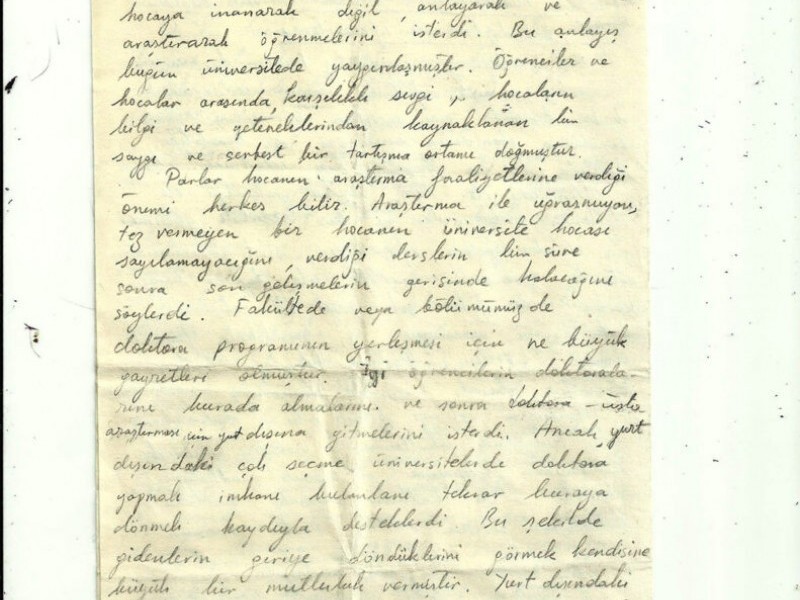 hocaya inanarak değil, anlayarak ve
araştırarak öğrenmelerini isterdi. Bu anlayış
bugün üniversitede yaygınlaşmıştır. Öğrenciler ve
hocalar arasında, karşılıklı sevgi, hocaların
bilgi ve yeteneklerinden kaynaklanan bir
saygı ve serbest bir tartışma ortamı doğmuştur.
Parlar hocanın araştırma faaliyetlerine verdiği
önemi herkes bilir. Araştırma ile uğraşmayan,
tez vermeyen bir hocanın üniversite hocası
sayılamayacağını, verdiği derslerin bir süre
sonra son gelişmelerin gerisinde kalacağını
söylerdi. Fakültede veya bölümümüzde
doktora programının yerleşmesi için ne büyük
gayretleri olmuştur. İyi öğrencilerin doktorala-
rını burada almalarını ve sonra doktora-üstü
araştırması için yurt dışına gitmelerini isterdi. Ancak, yurt
dışındaki çok seçme üniversitelerde doktora
yapmak imkanı bulanları tekrar buraya
dönmek kaydıyla desteklerdi. Bu şekilde
gidenlerin geriye döndüklerini görmek kendisine
büyük bir mutluluk vermiştir. Yurt dışındaki